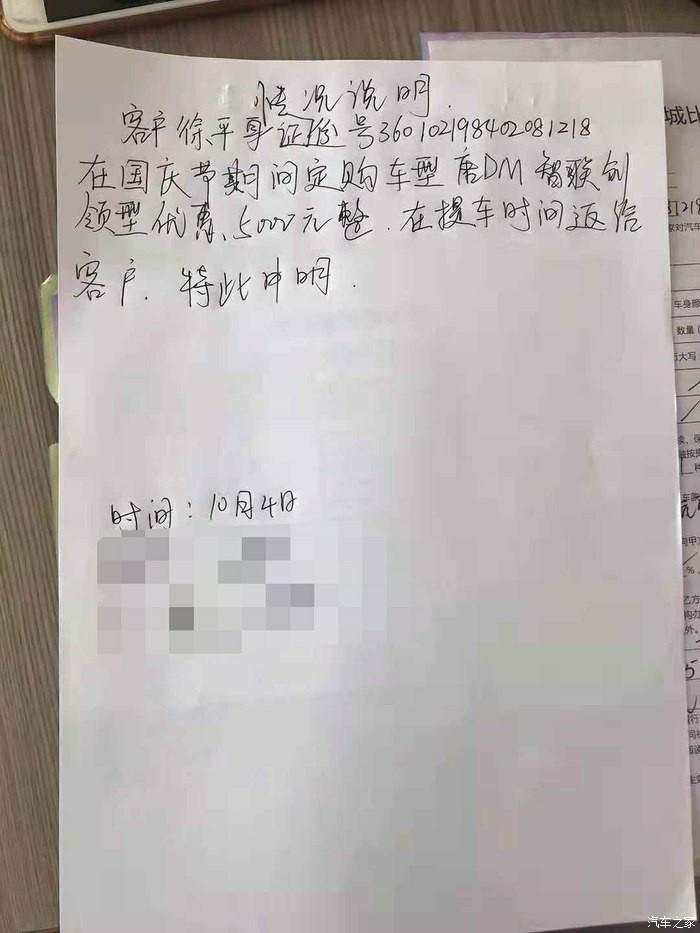 情况说明.
客户徐平身证份号360102198402081218
在国庆节期间定购车型唐DM智联创
领型优惠、5000元整.在提车时间返给
客户.特此申明.
时间:10月4日
城比
家对汽车
车身颜
数量（
大写：
续、保
种
乙方
构办
外。
汽车之家